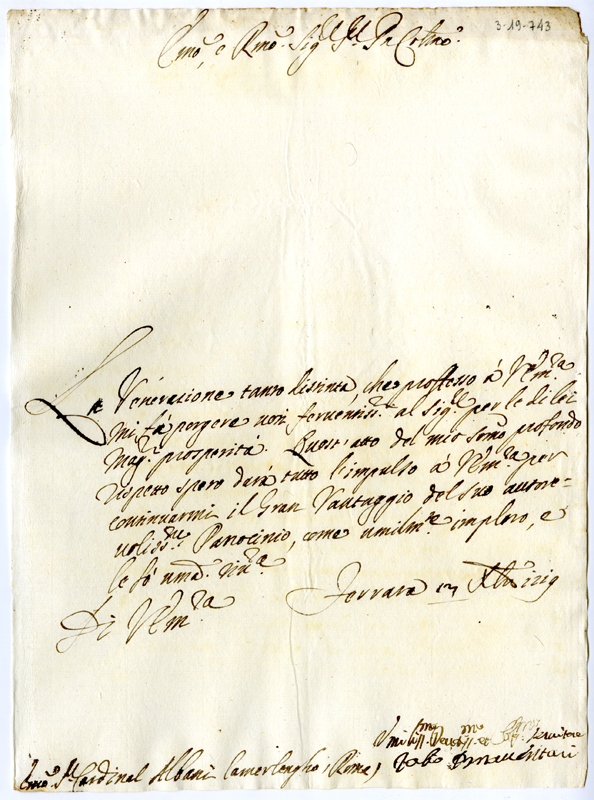 3-19-743
Emo, e Rmo Sigr. Sr. Pn Colmo.
La Venerazione tanto distinta, che professo à V. Em.za
mi fà porgere voti ferventiss.mi al Sigre per le di lei
magri prosperità. Quest'atto del mio sommo profondo
rispetto spero darà tutto l'impulso à V. Em.za per
continuarmi il Gran Vantaggio del suo autore-
voliss.mo Patrocinio, come umilmte imploro, e
le fò umma. riva.
Di V. Em.za
Ferrara 17 Xbre 1719
Umiliss.mo Devotiss.mo et Servitore
Emo. Sr. Cardinal Albani Camerlengho (Roma)
Bonaventuri